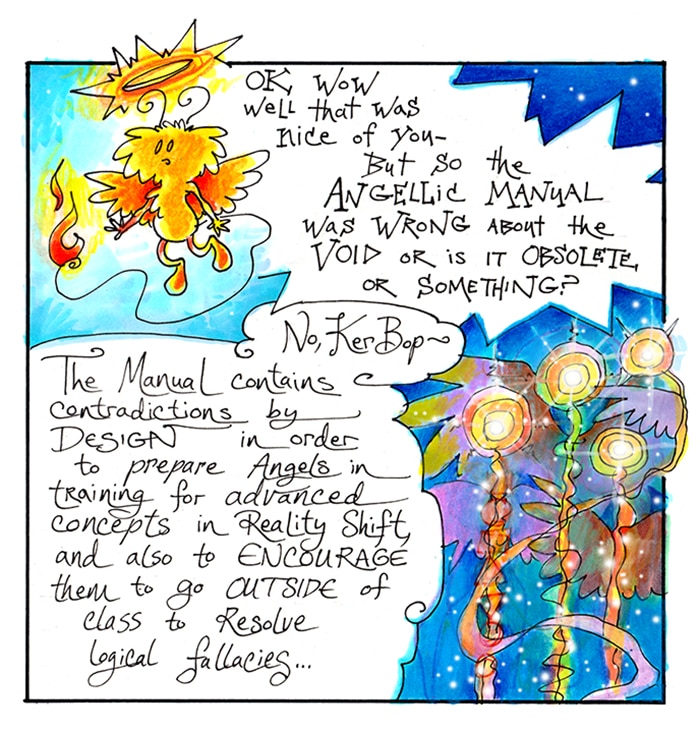 OK, WOW
well that was
nice of you-
But so the
ANGELLIC MANUAL
was WRONG about the
VOID or is it OBSOLETE,
OR SOMETHING?
No, KerBop~
The Manual contains
contradictions by
DESIGN in order
to prepare Angels in
training for advanced
concepts in Reality Shift,
and also to ENCOURAGE
them to go OUTSIDE of
class to Resolve
logical fallacies...